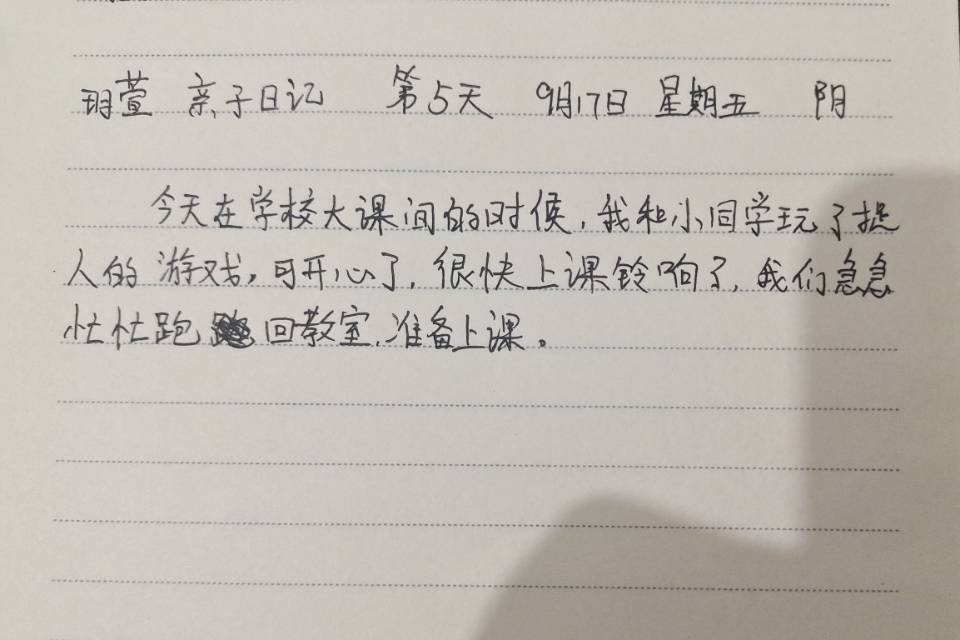 玥萱 亲子日记 第5天 9月17日 星期五 阴
今天在学校大课间的时候,我和小同学玩了捉
人的游戏,可开心了,很快上课铃响了,我们急急
忙忙跑回教室,准备上课。